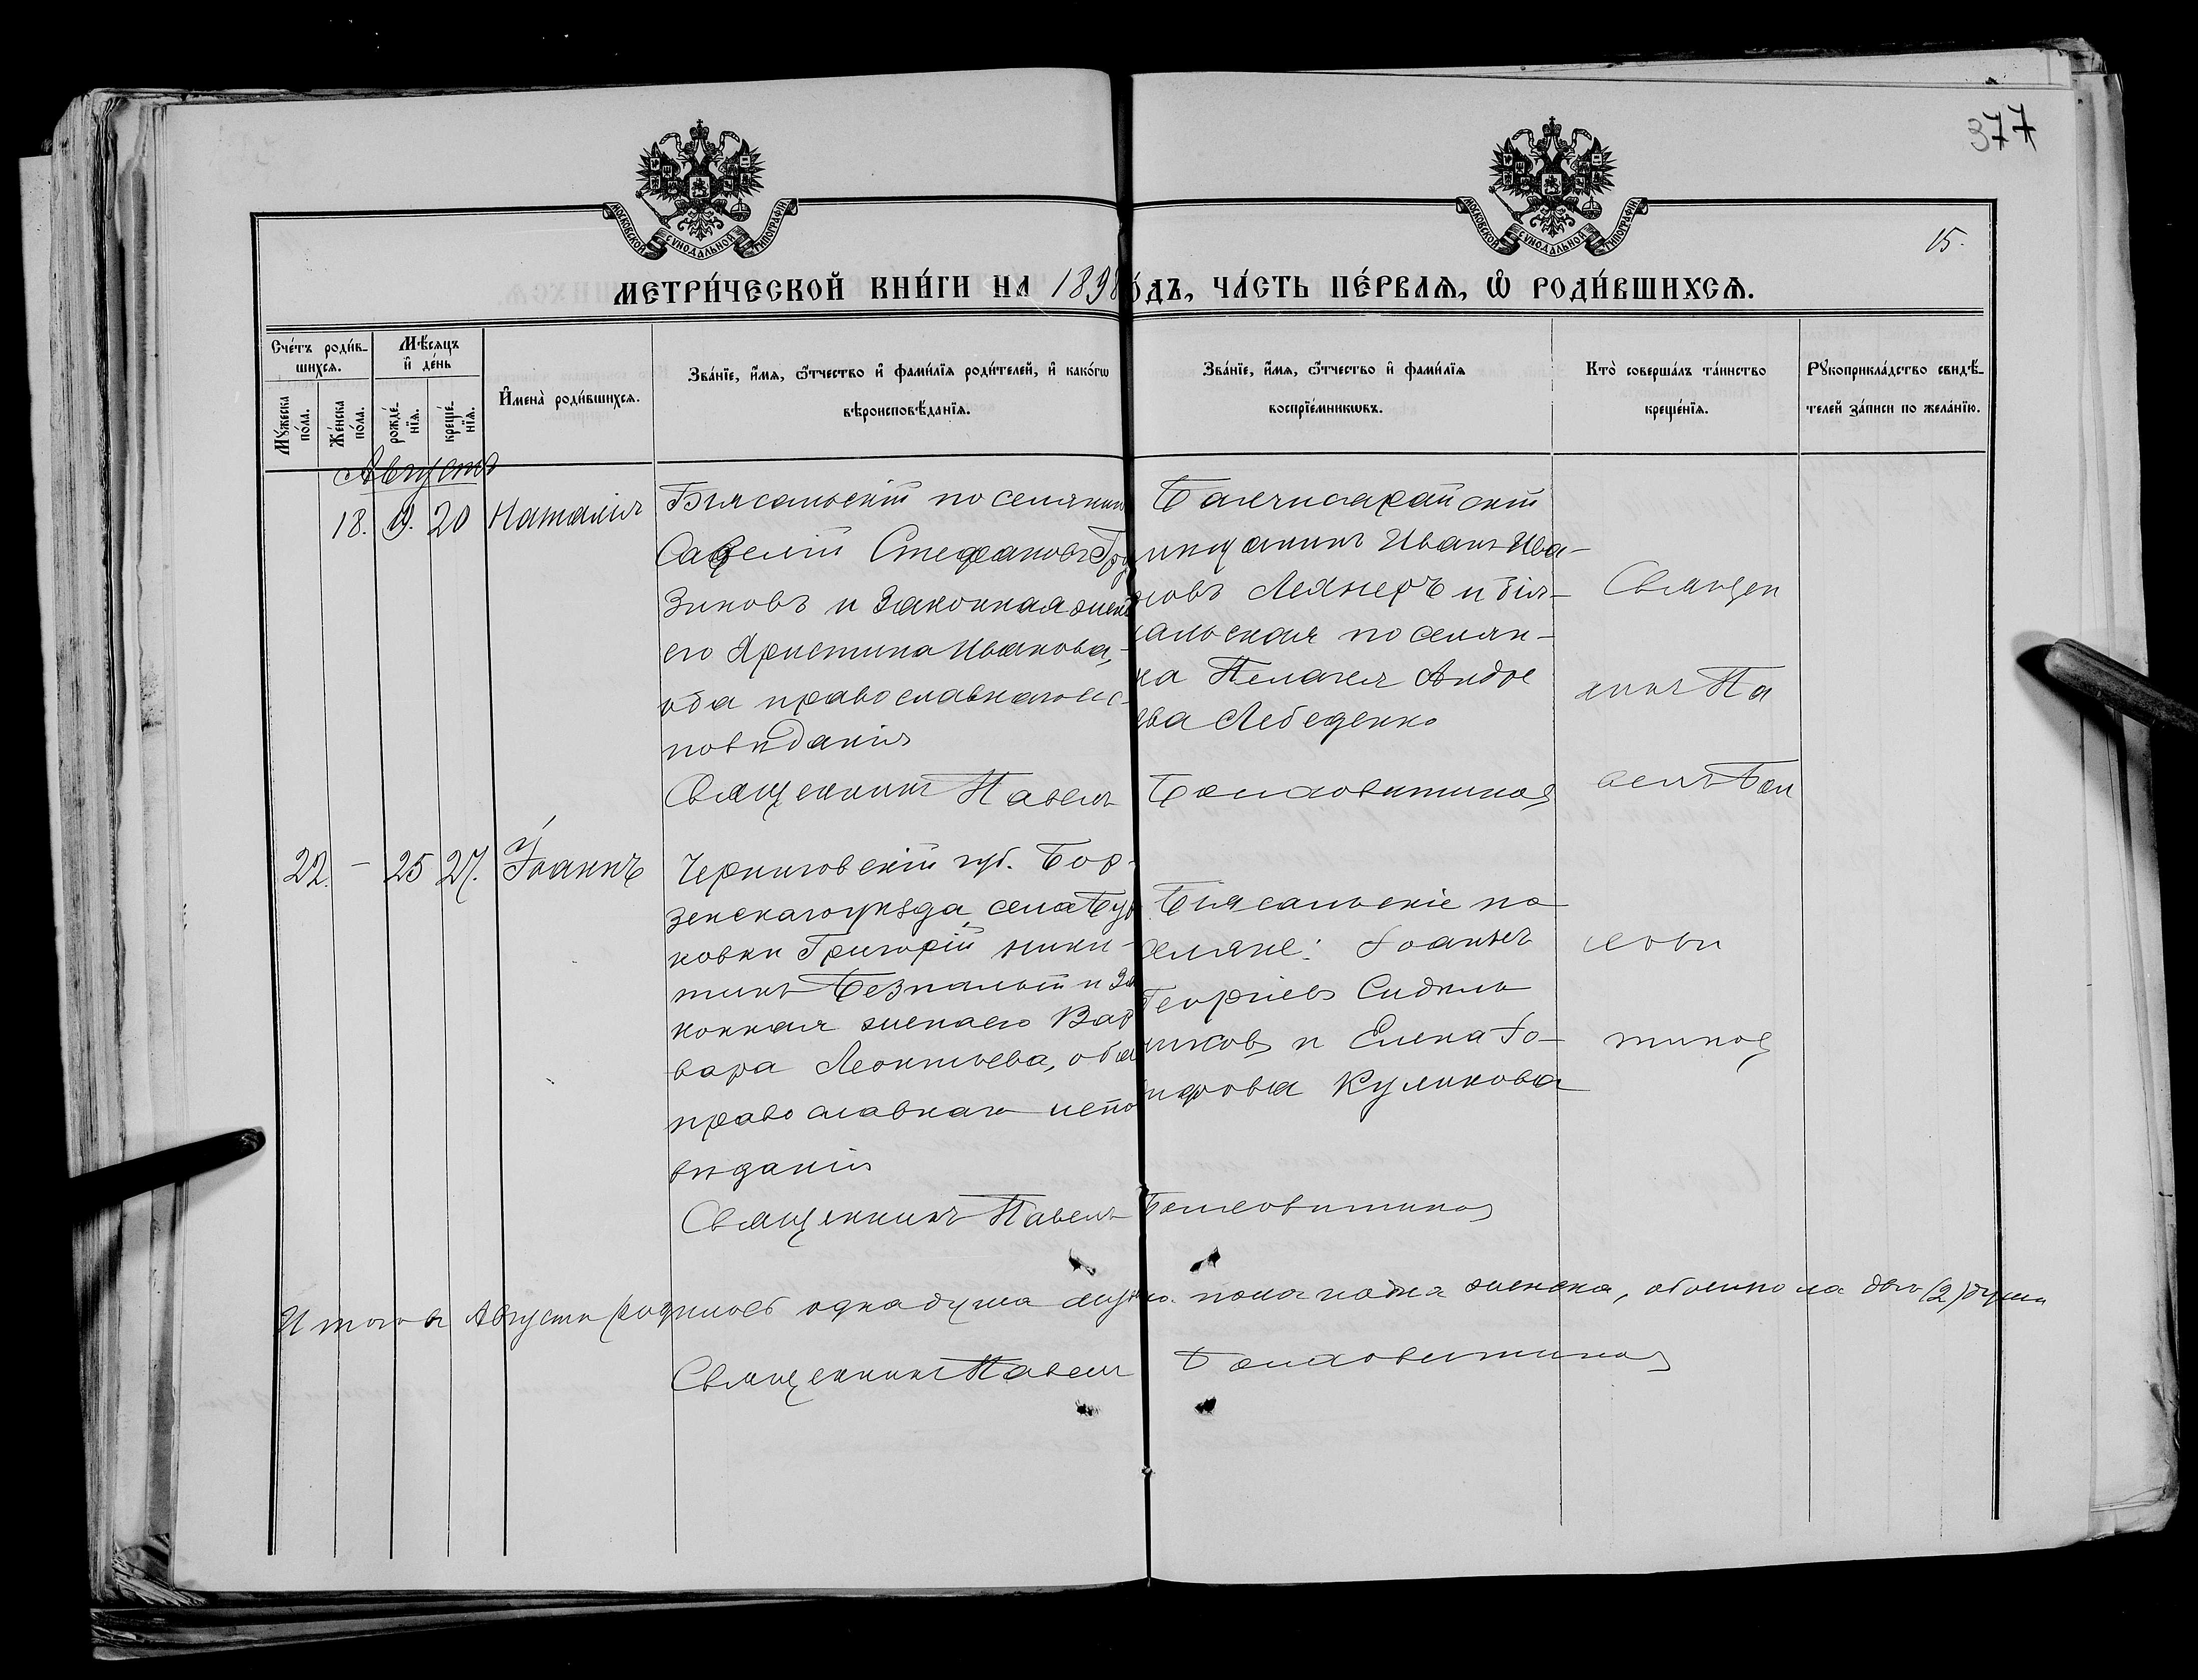 377
МОСКОВСКОЙ СѴНОДАЛЬНОЙ ТИПОГРАФІИ
МОСКОВСКОЙ СѴНОДАЛЬНОЙ ТИПОГРАФІИ
15.
МЕТРИ́ЧЕСКОЙ КНИ́ГИ НА 1898 ГО́ДЪ, ЧА́СТЬ ПЕ́РВАѦ, Ѡ҆ РОДИ́ВШИХСѦ.
Сче́тъ роди́в-
шихсѧ.
Мꙋ́жеска по́ла.
Же́нска по́ла.
Мѣ́сѧцъ
и҆ де́нь
рожде́нїѧ.
креще́нїѧ.
И҆мена̀ роди́вшихсѧ.
Зва́нїе, и҆́мѧ, ѻ҆́тчество и҆ фами́лїѧ роди́телей, и҆ како́гѡ
вѣроисповѣ́данїѧ.
Зва́нїе, и҆́мѧ, ѻ҆́тчество и҆ фами́лїѧ
воспрїе́мникѡвъ.
Кто̀ соверша́лъ та́инство
креще́нїѧ.
Рꙋкоприкла́дство свидѣ́-
телей за́писи по жела́нїю.
Августъ
18. 19. 20 Наталія
Біясальскій поселянин
Савелій Стефановъ Гру
зиновъ и законная жена
его Христина Иванова,
оба православнаго ис-
повѣданія
Священникъ Павелъ Болховитинов
Бахчисарайскій
мищанинъ Иванъ Ива-
новъ Лехнеръ и Бія-
сальская поселян-
ка Пелагея Андре
ева Лебеденко
Священ
никъ Па
велъ Бол
хови
тинов
22. - 25 27. Іоаннъ
Черниговскій губ. Бор-
зенскаго уѣзда, села
ковки Григорій Ники-
тинъ Безпалый и за
конная жена его Вар
вара Леонтьева, оба
православнаго испо
вѣданія
Священникъ Павелъ Болховитинов
Біясальскіе по
селяне: Іоаннъ
Георгіев Сидель
никовъ и Елена Іо-
сифова Куликова
Итого въ Августѣ родилось одна душа муж. пола и одна женска, обоего пола двѣ (2) души
Священникъ Павелъ Болховитинов